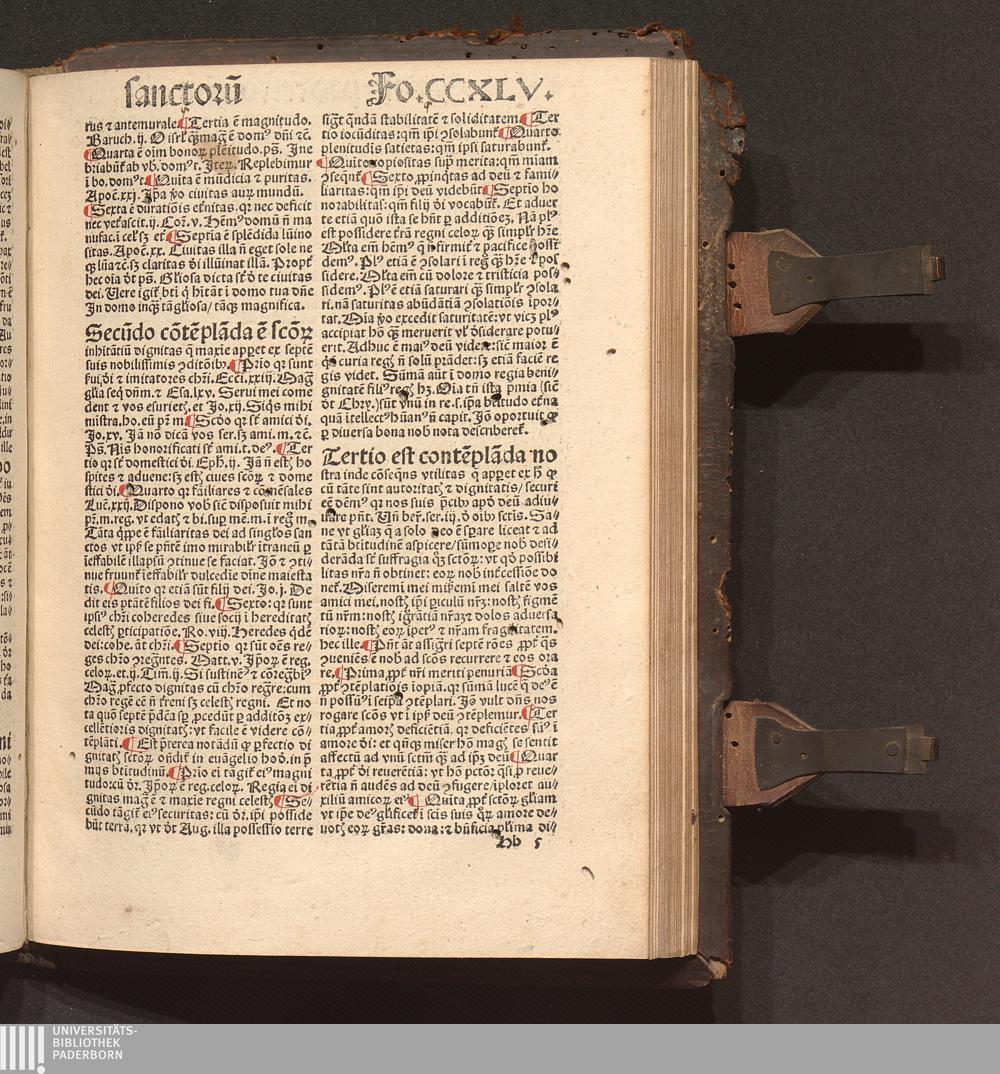 sanctorū
Fo.CCXLV.
rus ⁊ antemurale. Tertia ē magnitudo.
Baruch. ij. O isrł q̄ magᷓ ē domꝰ dn̄i ⁊c̄.
Quarta ē oīm honoꝝ plēitudo. ps̄. Ine
briabūt᷑ ab vb. domꝰ t. Iteꝝ. Replebimur
ī bo. domꝰ t. Quīta ē mūdicia ⁊ puritas.
Apoc̄. xxj. Ip̄a ꝟo ciuitas auꝝ mundū.
Sexta ē durationis et̄nitas. qꝛ nec deficit
nec vet᷑ascit. ij. Coꝝ. v. Hēmꝰ domū n̄ ma
nufac. ī cel' sꝫ et᷑. Septīa ē splēdida lūino
sitas. Apoc̄. xx. Ciuitas illa n̄ eget sole ne
qꝫ lūa ⁊c̄. sꝫ claritas di illūinat illā. Propt᷑
hec oīa dr̄ ps̄. Gl'iosa dicta sūt de te ciuitas
dei. Uere igit᷑ bt̄i q̄ hītāt ī domo tua dn̄e
In domo inqꝫ tā gl'iosa / tāqꝫ magnifica.
Secūdo cōtēplāda ē sctōꝝ
inhītātiū dignitas q̄ maxīe appet ex septē
suis nobilissimis ꝯditōibꝰ. Prio qꝛ sunt
fui di ⁊ imitatores chr̄i. Ecci. xxiij. Mag
gl'ia seq̄ dn̄m. ⁊ Esa. lxv. Serui mei come
dent ⁊ vos esurietꝭ. et Jo. xij. Siq̄s mihi
mistra. ho. eū pr̄ m̄. Scd̄o qꝛ sūt amici di.
Jo. xv. Iā nō dicā vos ser. sꝫ ami. m. ⁊c̄.
Ps̄. Nīs honorificati sūt ami. t. deꝰ. Ter
tio qꝛ sūt domestici di. Eph. ij. Iā n̄ estꝭ ho
spites ⁊ aduene: sꝫ estꝭ ciues sctōꝝ ⁊ dome
stici di. Quarto qꝛ fāiliares ⁊ cōmēsales
Luc̄. xxij. Dispono vob sic̄ disposuit mihi
pr̄. m. reg. vt edatꝭ ⁊ bi. sup mē. m. ī reg m.
Tāta q̄ppe ē fāiliaritas dei ad singl'os san
ctos vt ip̄e se p̄nte īmo mirabilr̄ ītraneū ꝑ
ieffabilē illapsū ꝯtinue se faciat. Iō ⁊ ꝯti
nue fruunt᷑ ieffabilr̄ dulcedīe dīne maiesta
tis. Quīto qꝛ etiā sūt filij dei. Jo. j. De
dit eis ptātē filios dei fi. Sexto: qꝛ sunt
ipsiꝰ chr̄i coheredes siue socij ī hereditatꝭ
celestꝭ ꝑticipatiōe. Ro. viij. Heredes q̄dē
dei: cohe. āt chr̄i. Septīo qꝛ sūt oēs re
ges chr̄o ꝯregn̄tes. Matt. v. Ip̄oꝝ ē reg.
celoꝝ. et. ij. Tim. ij. Si sustinēꝰ ⁊ cōregbīꝰ
Magᷓ ꝓfecto dignitas cū chr̄o regre: cum
chr̄o rege cē n̄ t̄reni sꝫ celestꝭ regni. Et no
ta quō septē p̄dcā sꝑ ꝓcedūt ꝑ additōꝫ ex
cellētioris dignitatꝭ: vt facile ē videre cō
tēplāti. Est p̄terea notādū qꝙ ꝑfectio di
gnitatꝭ sctōꝝ on̄dit᷑ in euāgelio hod. in p̄
mijs btitudinū. Prio ei tāgit᷑ eiꝰ magni
tudo: cū dr̄. Ip̄oꝝ ē reg. celoꝝ. Regia ei di
gnitas magᷓ ē ⁊ maxīe regni celestꝭ. Se
cūdo tāgit᷑ eiꝰ securitas: cū dr̄. ip̄i posside
būt terrā. qꝛ vt dt̄ Aug. illa possessio terre
sigt q̄ndā stabilitatē ⁊ soliditatem. Ter
tio iocūditas: qm̄ ip̄i ꝯsolabunt᷑. Quarto
plenitudīs satietas: qm̄ ipsi saturabunt᷑.
Quīto copiositas sup̄ merita: qm̄ miam
ꝯsequnt᷑. Sexto ꝓpinq̄tas ad deū ⁊ famil
iaritas: qm̄ ip̄i deū videbūt. Septīo ho
norabilitas: qm̄ filij di vocabūt᷑. Et aduer
te etiā quō ista se hn̄t ꝑ additiōeꝫ. Nā plꝰ
est possidere t̄rā regni celoꝝ qꝫ simplr̄ h̄re
Ml̄ta em̄ hēmꝰ q̄ n̄ firmit᷑ ⁊ pacifice possi
demꝰ. Plꝰ etiā ē ꝯsolari ī reg qꝫ h̄re ⁊ pos
sidere. Ml̄ta em̄ cū dolore ⁊ tristicia pos
sidemꝰ. Plꝰ ē etiā saturari qꝫ simplr̄ ꝯsola
ri. nā saturitas abūdātiā ꝯsolatiōis īpor
tat. Mīa ꝟo excedit saturitatē: vt vicꝫ plꝰ
accipiat hō qꝫ meruerit vl' desiderare potu
erit. Adhuc ē maiꝰ deū videre: sic̄ maior ē
q̄ ī curia regꝭ n̄ solū prādet: sꝫ etiā faciē re
gis videt. Sūmā aūt ī domo regia beni
gnitatē filiꝰ regꝭ hꝫ. Oīa tn̄ ista p̄mia (sic̄
dt̄ Chry.) sūt vnū in re. s. ip̄a btitudo et̄na
quā ītellectꝰ hūanꝰ n̄ capit. Iō oportuit qꝙ
ꝑ diuersa bona nob nota describeret᷑.
Tertio est contēplāda no
stra inde cōseq̄ns vtilitas q̄ appet ex h̄ qꝙ
cū tāte sint autoritatꝭ ⁊ dignitatis / securi
ee dēmꝰ qꝛ nos suis p̄cibꝰ apd̄ deū adiu
uare pn̄t. Un̄ ber. ser. iij. d oībꝰ sctis. Sa
ne vt gl'iaꝫ q̄ a solo deo ē sꝑare liceat ⁊ ad
tātā btitudinē aspicere / sūmope nob desi
derāda sūt suffragia qꝫ sctōꝝ: vt qꝙ possibi
litas nr̄a n̄ obtinet: eoꝝ nob īntꝰcessiōe do
net᷑. Miseremi mei mis̄emi mei saltē vos
amici mei. nostꝭ ip̄i ꝑiculū nr̄ꝫ: nostꝭ figmē
tū nr̄m: nostꝭ ignōratiā nr̄aꝫ ⁊ dolos aduersa
rioꝝ: nostꝭ eoꝝ īpetꝰ ⁊ nr̄am fragilitatem.
hec ille. Pn̄t āt assigri septē rōes ꝓpt᷑ qꝫ
ꝯueniēs ē nob ad sctōs recurrere ⁊ eos ora
re. Prima, ꝓpt᷑ nr̄i meriti penuriā. Scd̄a
ꝓpt᷑ ꝯtēplatiōis īopiā. qꝛ sūmā lucē q̄ deꝰ ē
n̄ possumꝰ ī seipsa ꝯtēplari. Iō vult dn̄s nos
rogare sctōs vt ī ipsꝭ deū ꝯtēplemur. Ter
tia, ꝓpt᷑ amorꝭ deficiētiā. qꝛ deficiētes sumꝰ ī
amore di: et qn̄qꝫ miser hō magꝭ se sentit
affectū ad vnū sctm̄ qꝫ ad ip̄ꝫ deū. Quar
ta, ꝓpt᷑ di reuerētiā: vt hō pctōr q̄si p̄ reue
rētia n̄ audēs ad deū ꝯfugere iploret au
xiliū amicoꝝ eiꝰ. Quīta, ꝓpt᷑ sctōꝝ gl'iam
vt ip̄e deꝰ gl'ificet᷑ ī sctis suis q̄ꝝ amore de
uotꝭ eoꝝ gr̄as: dona: ⁊ bn̄ficia pl'ima di
Hh 5
UNIVERSITÄTS-
BIBLIOTHEK
PADERBORN